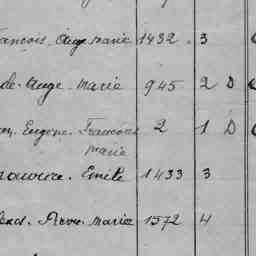 Ange marie 1432 3
de Ange marie 945 2 D
Eugène François 2 1 D
marie
Emile 1433 3
Pierre marie 1572 4